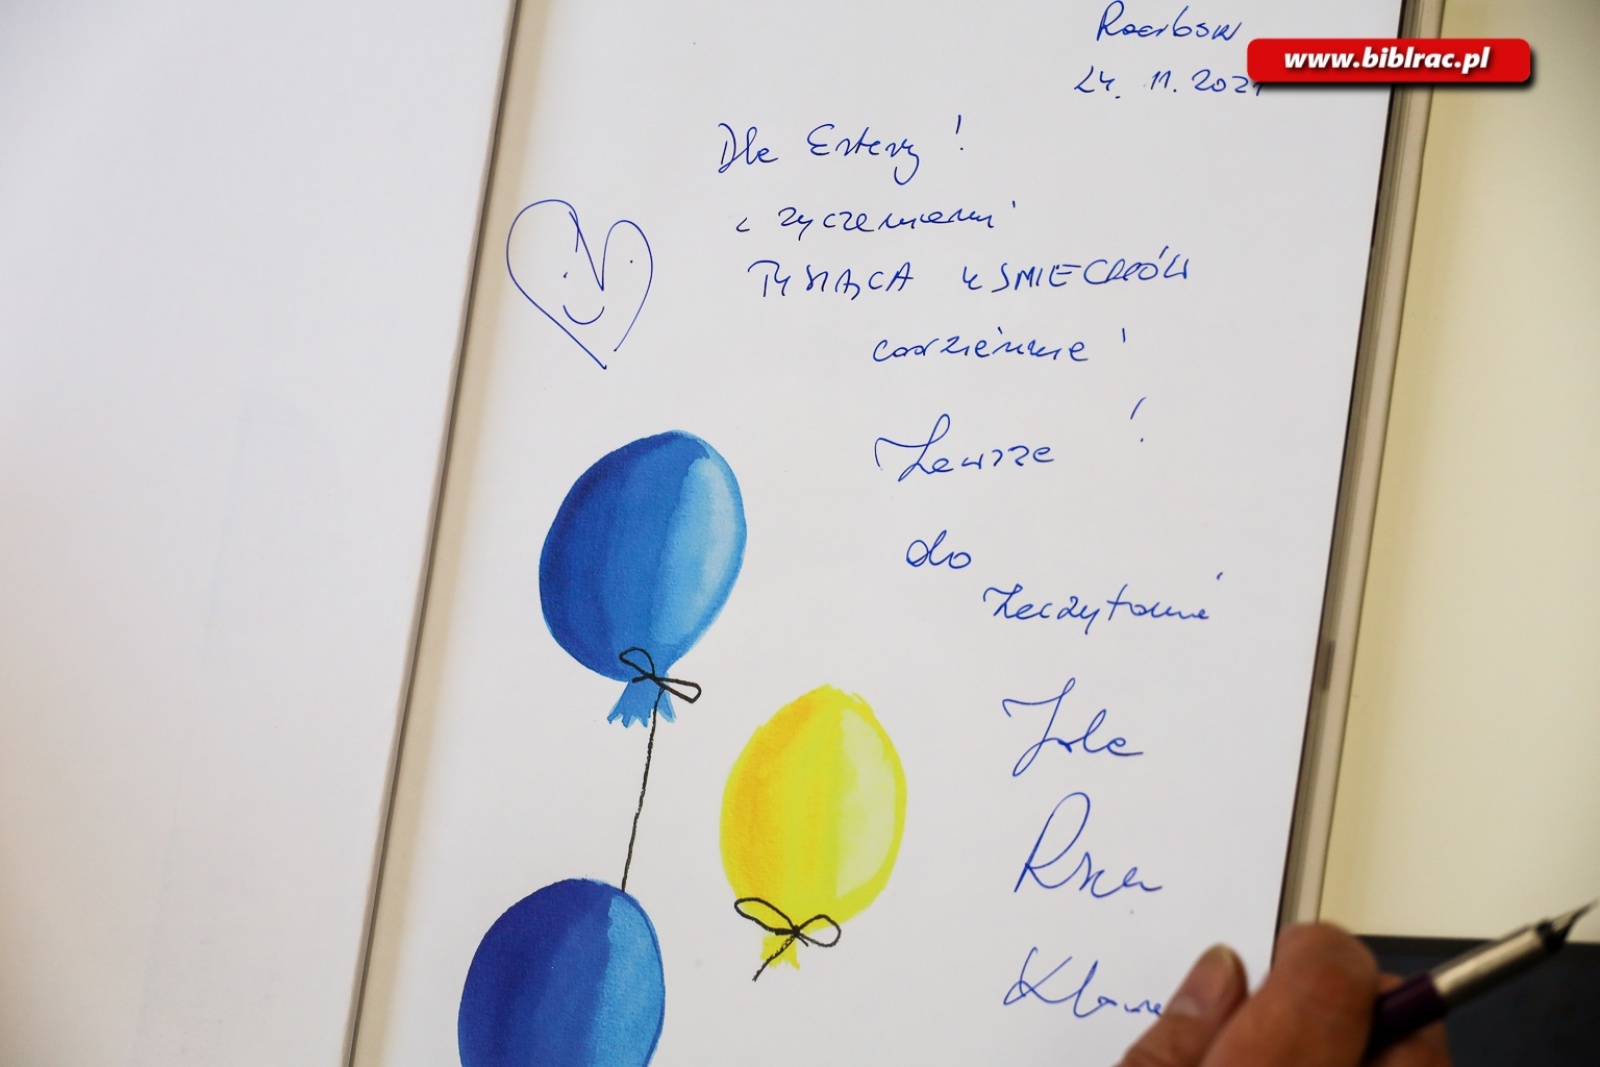 Racibórz
www.biblrac.pl
24. 11. 2021
Dla Estery!
z życzeniami
TYSIĄCA UŚMIECHÓW
codziennie!
Zawsze!
do
zaczytania
Jola
Klawe